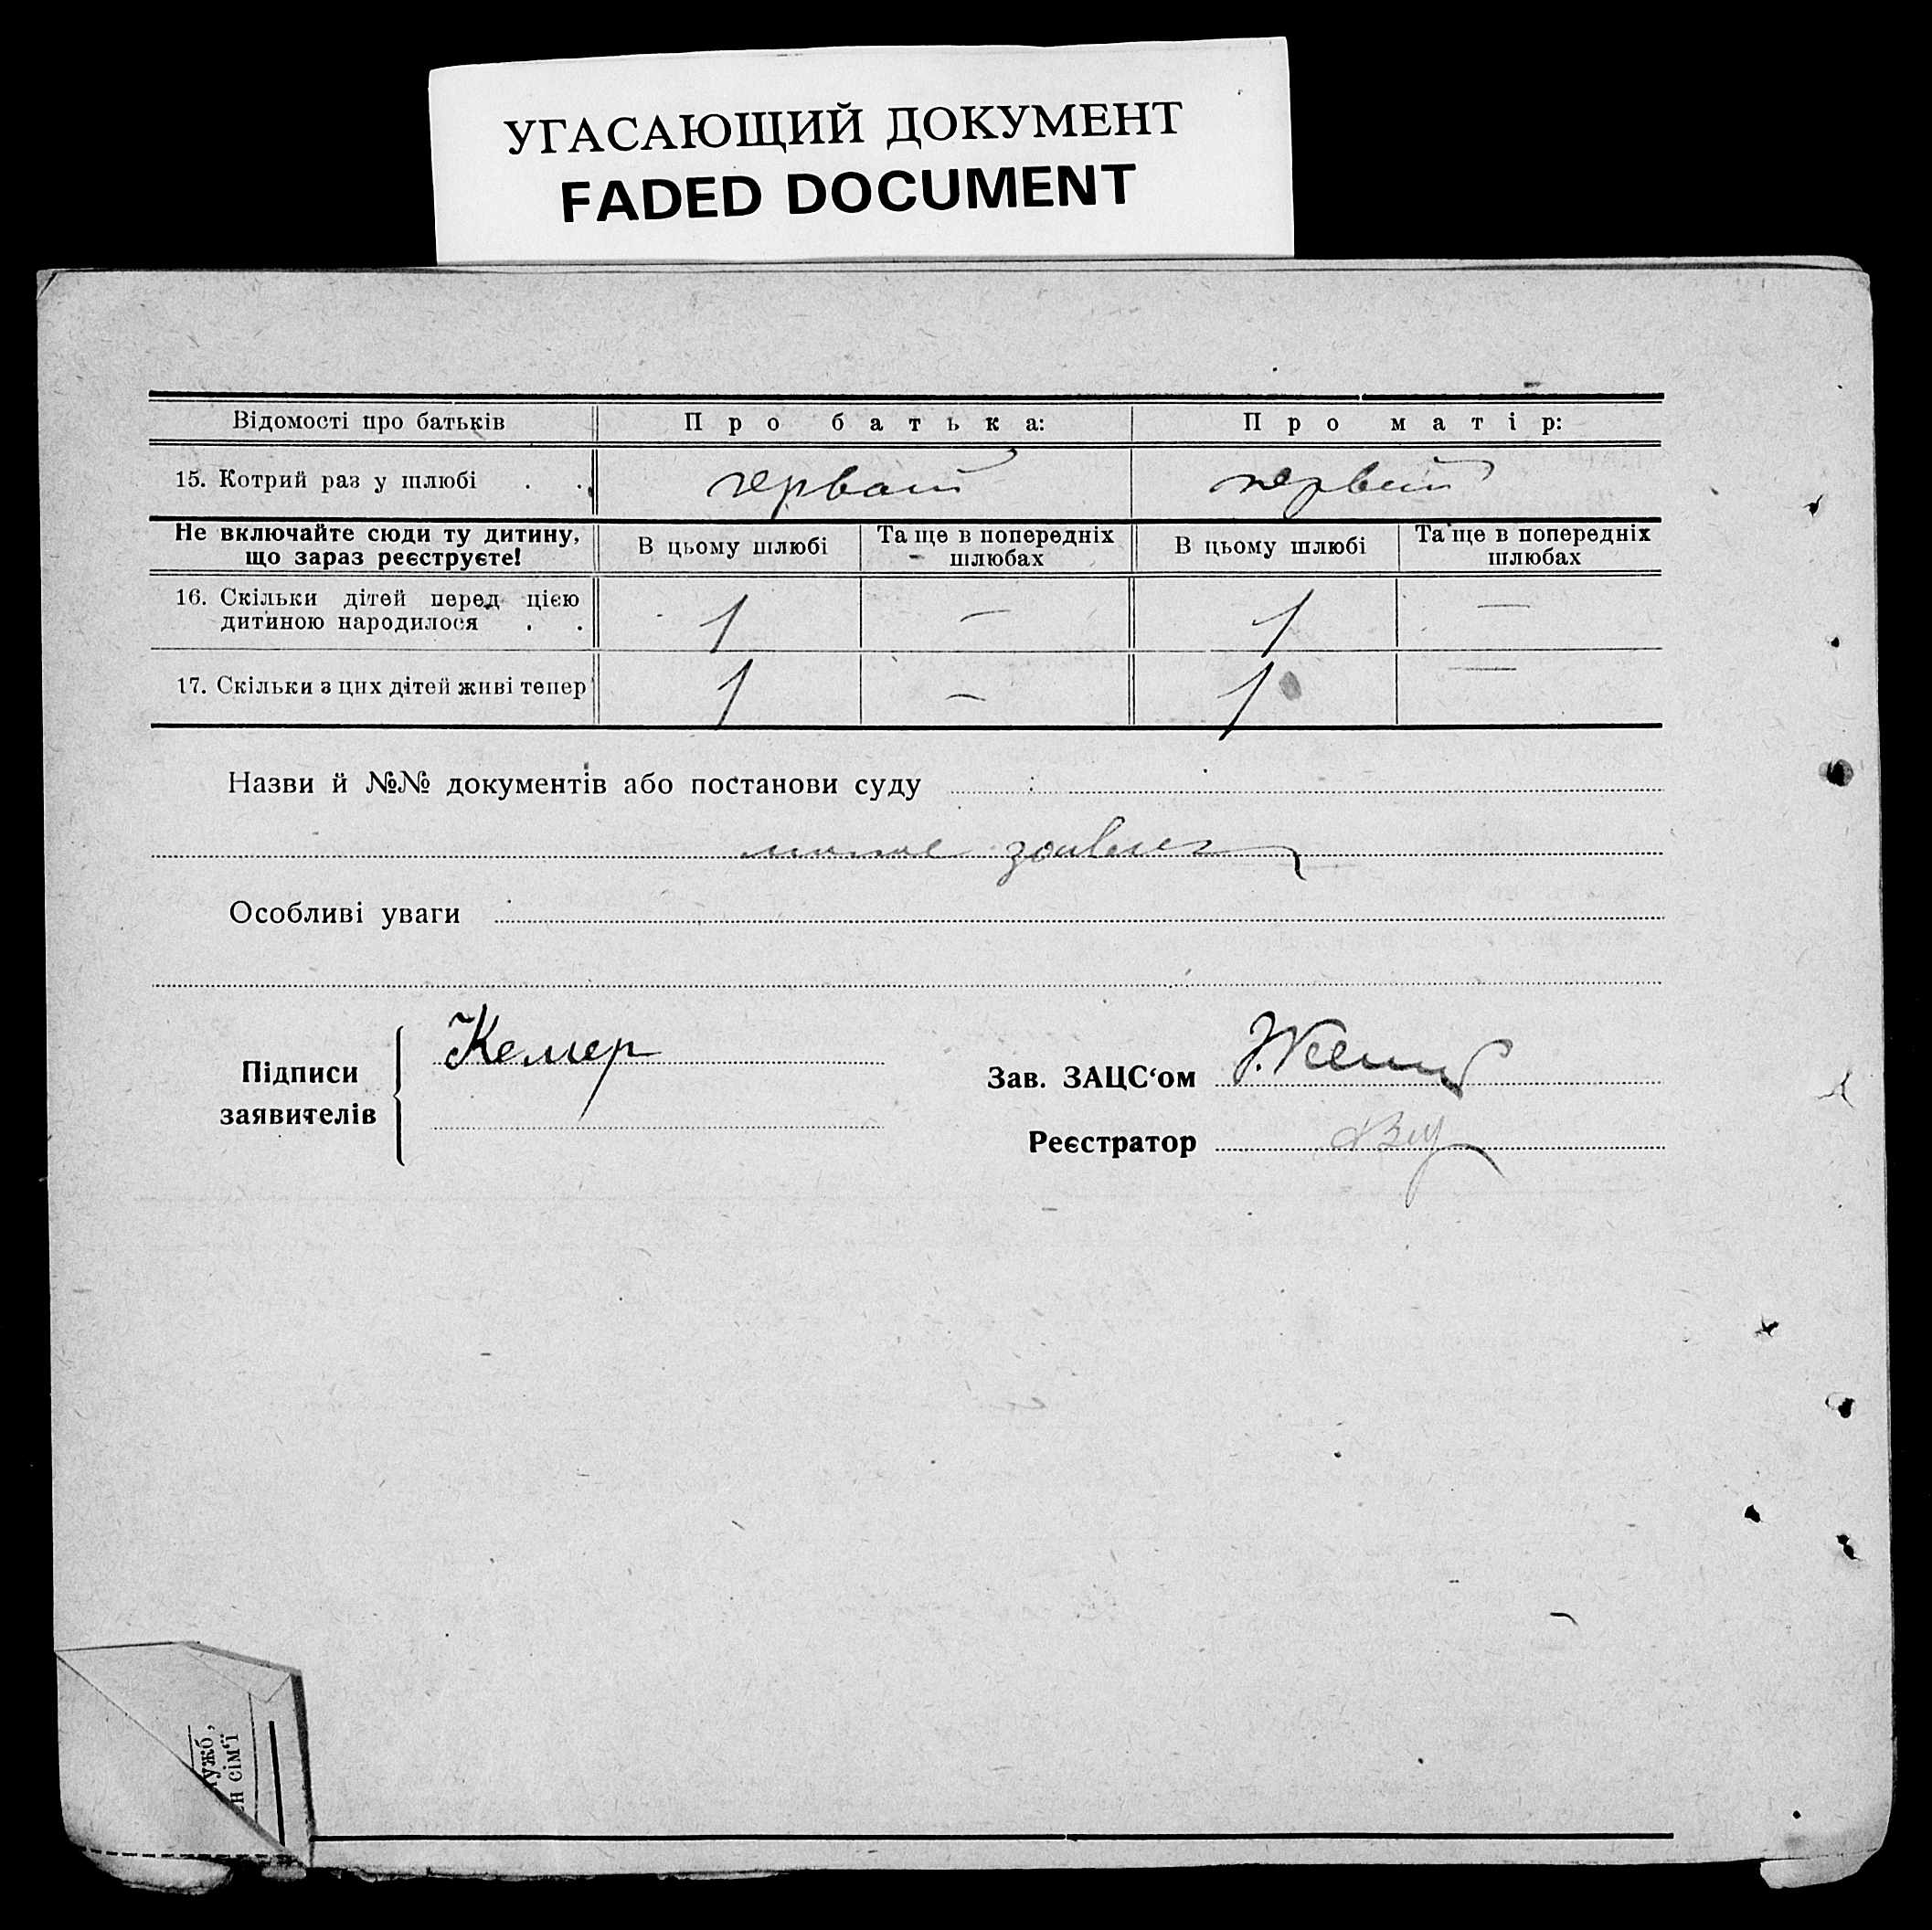 УГАСАЮЩИЙ ДОКУМЕНТ
FADED DOCUMENT
Відомості про батьків Про батька: Про матір:
15. Котрий раз у шлюбі . . первый первый
Не включайте сюди ту дитину, що зараз реєструєте! В цьому шлюбі Та ще в попередніх шлюбах В цьому шлюбі Та ще в попередніх шлюбах
16. Скільки дітей перед цією
дитиною народилося . . 1 — 1 —
17. Скільки з цих дітей живі тепер 1 — 1 —
Назви й №№ документів або постанови суду
Особливі уваги
Підписи
заявителів
Келлер
Зав. ЗАЦС‘ом
Реєстратор
ужб,
н сім'ї